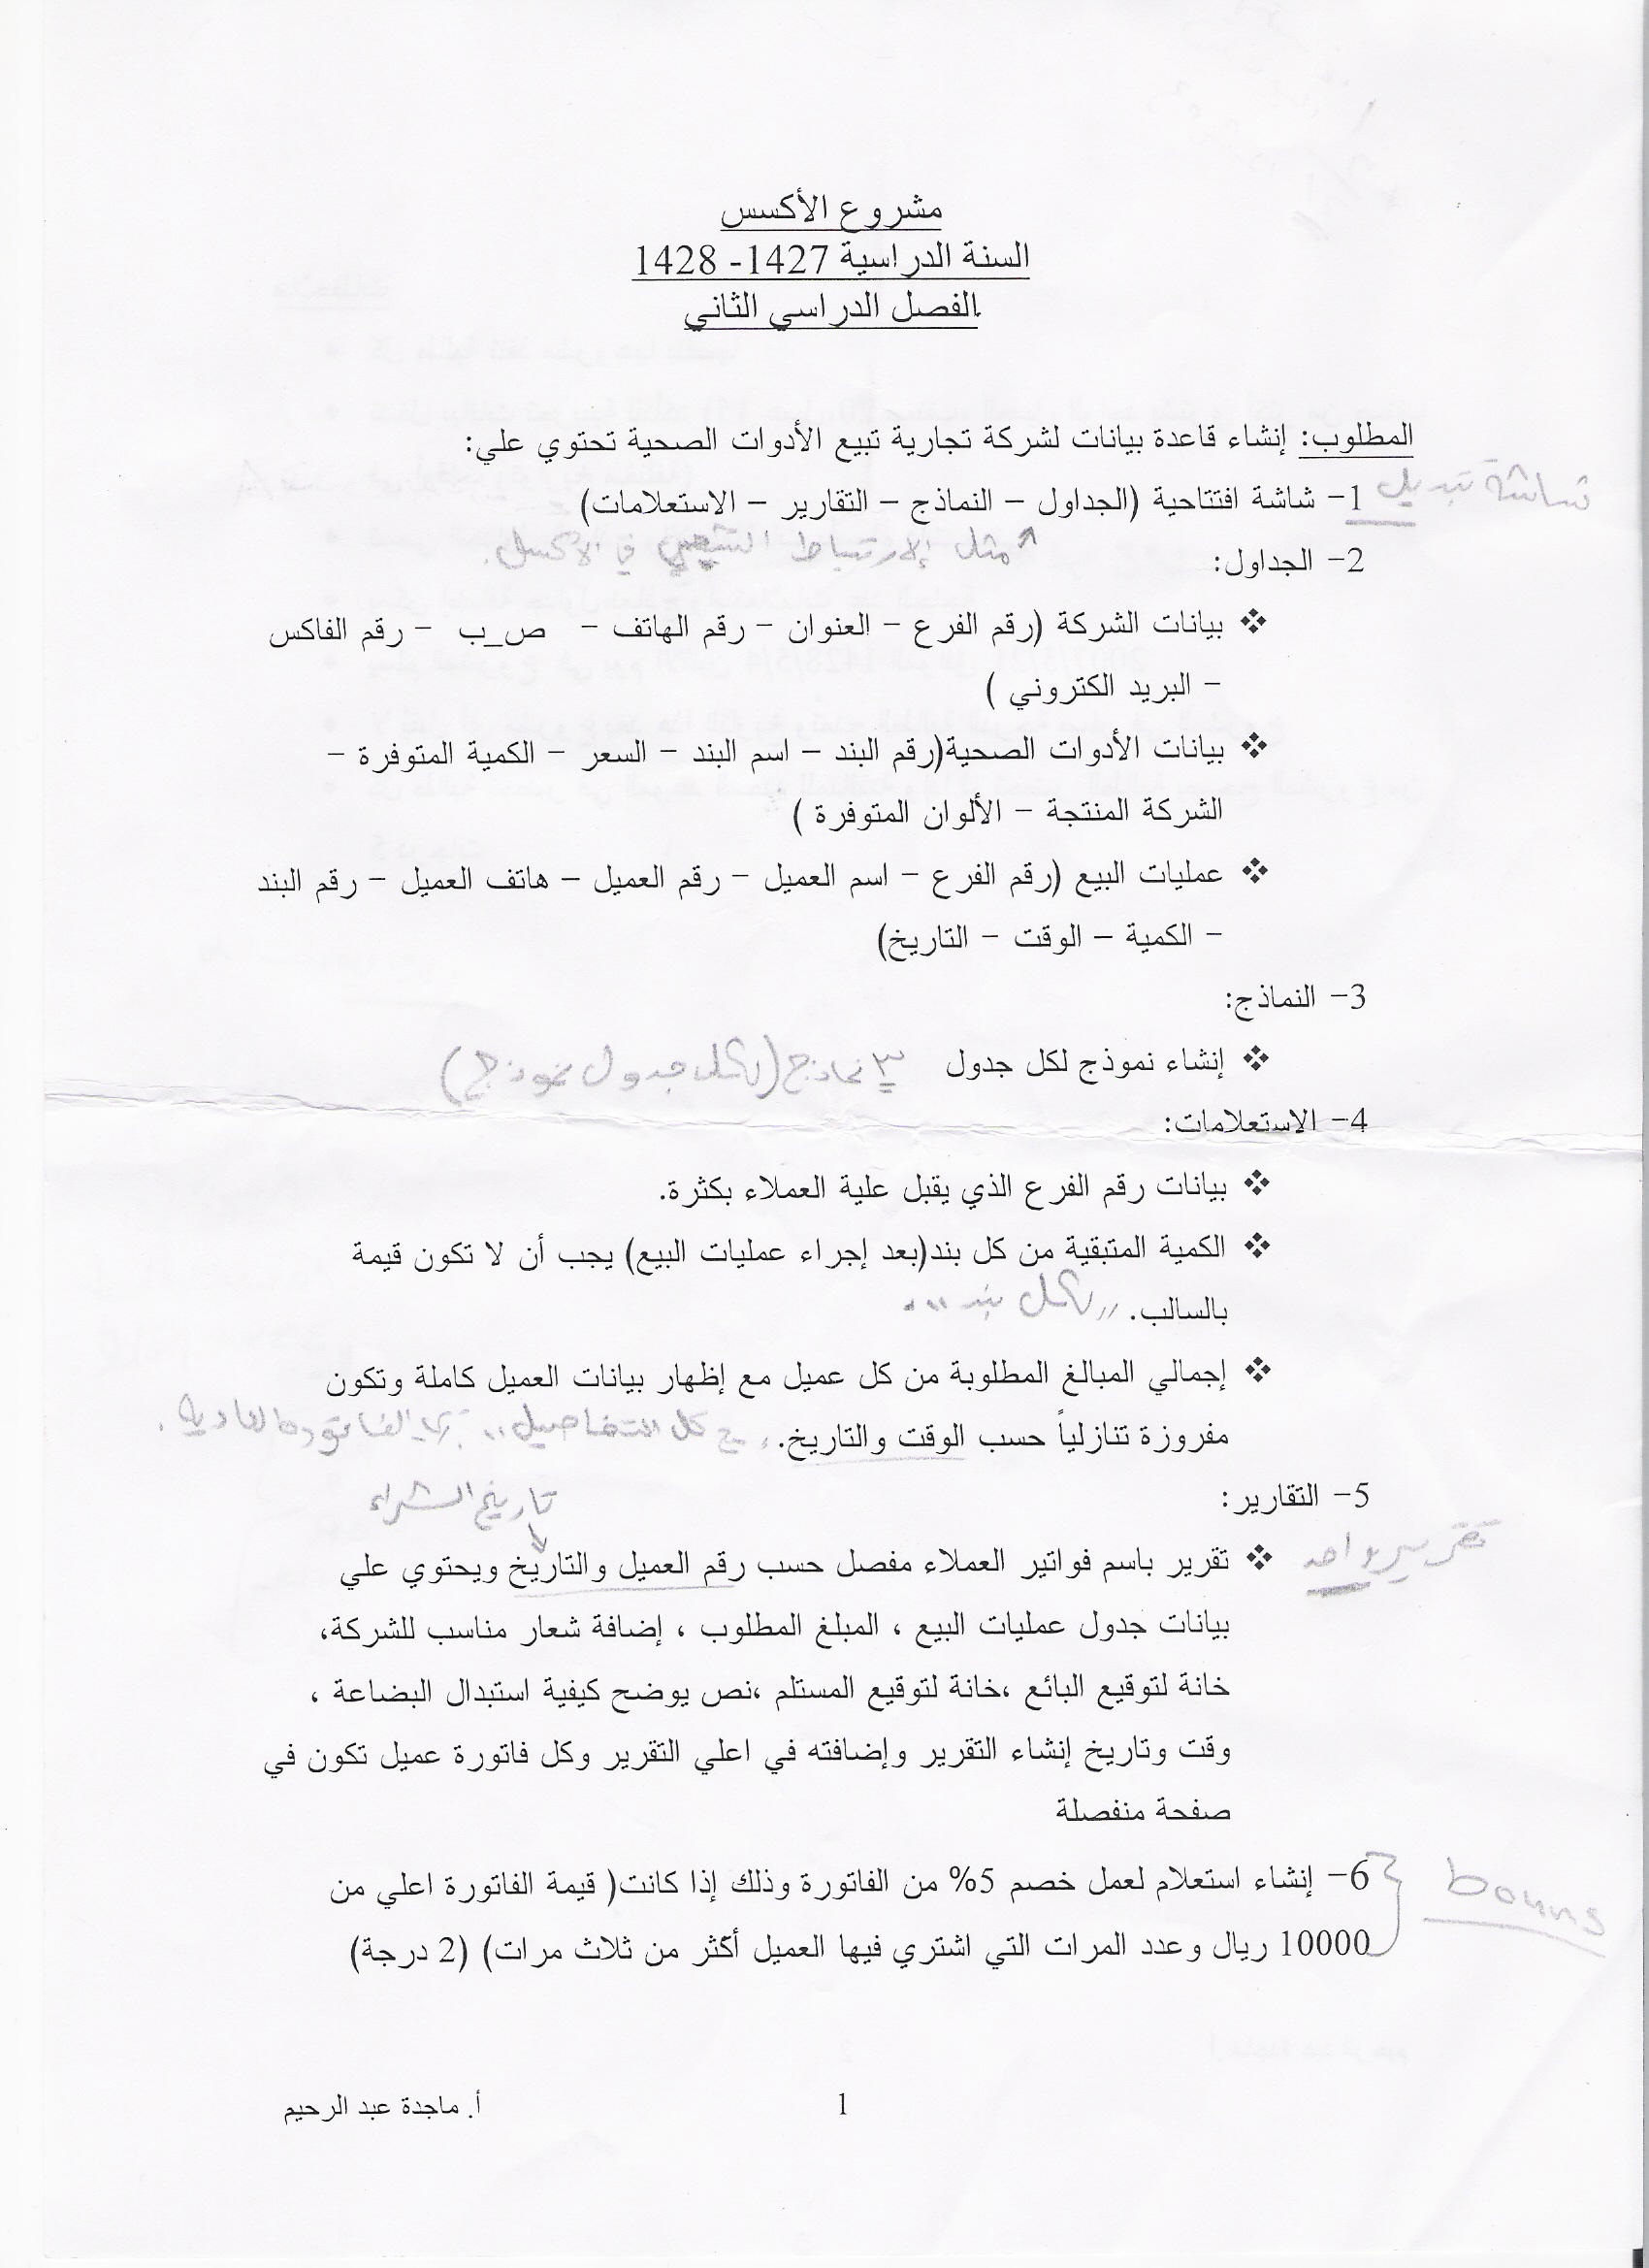 مشروع الأكسس
السنة الدراسية 1427- 1428
الفصل الدراسي الثاني
المطلوب: إنشاء قاعدة بيانات لشركة تجارية تبيع الأدوات الصحية تحتوي علي:
شاشة تبديل
1- شاشة افتتاحية (الجداول – النماذج – التقارير – الاستعلامات)
مثل الارتباط التشعبي في الأكسل.
2- الجداول:
❖ بيانات الشركة (رقم الفرع – العنوان – رقم الهاتف – ص_ب – رقم الفاكس
– البريد الكتروني )
❖ بيانات الأدوات الصحية(رقم البند – اسم البند – السعر – الكمية المتوفرة –
الشركة المنتجة – الألوان المتوفرة )
❖ عمليات البيع (رقم الفرع – اسم العميل – رقم العميل – هاتف العميل – رقم البند
– الكمية – الوقت – التاريخ)
3- النماذج:
❖ إنشاء نموذج لكل جدول ٣ نماذج (لكل جدول نموذج)
4- الاستعلامات:
❖ بيانات رقم الفرع الذي يقبل علية العملاء بكثرة.
❖ الكمية المتبقية من كل بند(بعد إجراء عمليات البيع) يجب أن لا تكون قيمة
بالسالب. لكل بند
❖ إجمالي المبالغ المطلوبة من كل عميل مع إظهار بيانات العميل كاملة وتكون
مفروزة تنازلياً حسب الوقت والتاريخ. كل التفاصيل
5- التقارير:
تاريخ الشراء
تقرير واحد
❖ تقرير باسم فواتير العملاء مفصل حسب رقم العميل والتاريخ ويحتوي علي
بيانات جدول عمليات البيع ، المبلغ المطلوب ، إضافة شعار مناسب للشركة،
خانة لتوقيع البائع ،خانة لتوقيع المستلم ،نص يوضح كيفية استبدال البضاعة ،
وقت وتاريخ إنشاء التقرير وإضافته في اعلي التقرير وكل فاتورة عميل تكون في
صفحة منفصلة
bouns
6- إنشاء استعلام لعمل خصم 5% من الفاتورة وذلك إذا كانت( قيمة الفاتورة اعلي من
10000 ريال وعدد المرات التي اشتري فيها العميل أكثر من ثلاث مرات) (2 درجة)
1
أ. ماجدة عبد الرحيم